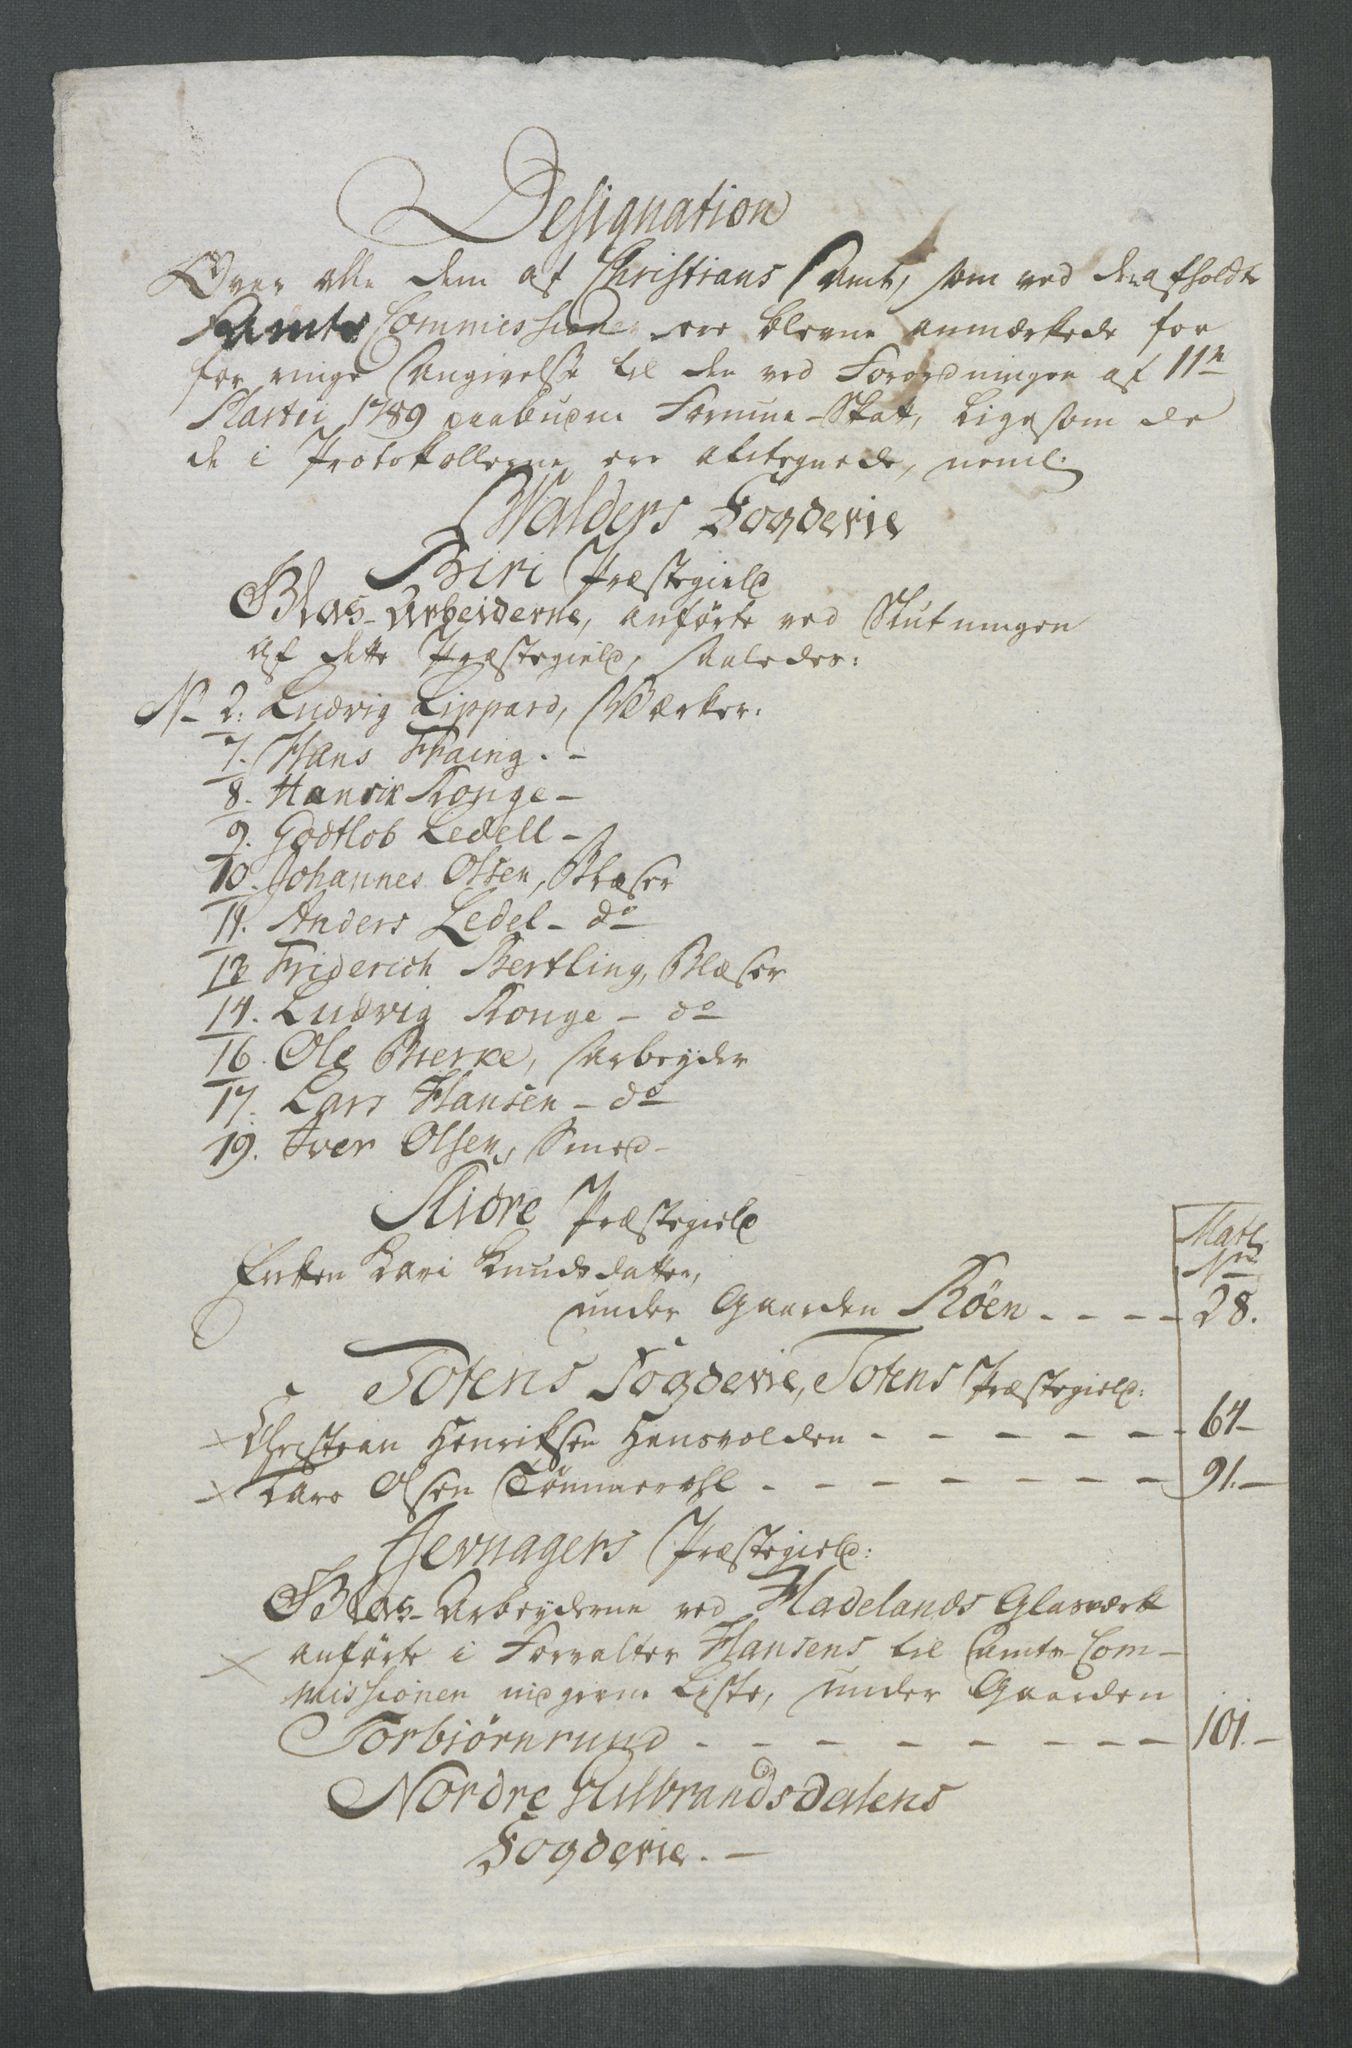 Designation
Over alle dem af Christians Amt, som ved den afholdte
Amts Commissionen ere blevne anmærkede for
for ringe Angivelse til den ved Forordningen af 11te
Martii 1789 paabudne Formue-Skat, ligesom de
de i Protokollerne ere antegnede, neml:
Walders Fogderie
Biri Præstegield
Glas-Arbeiderne, anførte ved Slutningen
af dette Præstegield, saaledes:
No 2: Ludvig Lippard, Værker:
7. Hans Fraing. -
8. Henrik Ronge -
9. Godtlob Ledell -
10. Johannes Olsen, Blæser
11. Anders Ledel - do
13 Friderich Bertling, Blæser
14. Ludvig Ronge - do
16. Ole Bierke, Arbeyder
17. Lars Hansen - do
19. Iver Olsen, Smed -
Slidre Præstegield
Matl: No
Enken Kari Knudsdatter,
under Gaarden Röen - - - - 28.
Totens Fogderie, Totens Præstegield:
Christian Henriksen Hensvolden - - - - - - 64 -
Lars Olsen Tømmerhol - - - - - - - 91. -
Jevnagers Præstegield:
Glas-Arbeyderne ved Hadelands Glasværk
anførte i Forvalter Hansens til Amts-Com-
missionen indgivne Liste, under Gaarden
Torbiørnrund - - - - - - - - 101. -
Nordre Gulbrandsdalens
Fogderie. -